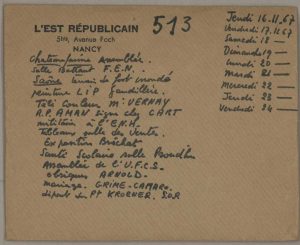 L'EST RÉPUBLICAIN
5bis, Avenue Foch
NANCY
513
Jeudi 16-11-67
Vendredi 17.11.67
Samedi 18 —
Dimanche 19 —
Lundi 20 —
Mardi 21 —
Mercredi 22 —
Jeudi 23 —
Vendredi 24 —
Assemblée.
Salle Battant F.E.N.
Saône terrain de foot inondé
peinture LIP
Télé Couleur Mr VERNAY
R.P. AMAN signe chez CART
militaire à l'E.N.H.
Tableaux salle des Ventes.
Exposition Bréchat
Santé Scolaire salle Proudhon
Assemblée de l'U.F.C.S.
obsèques ARNOLD.
mariage. GRIME-CAMARO.
départ de Mr KROENER. S.O.R